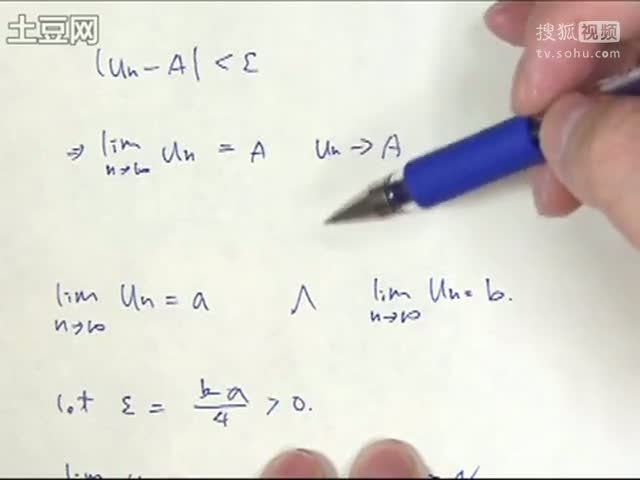 土豆网
搜狐视频
tv.sohu.com
|Un - A| < ε
⇒ lim n→∞ Un = A Un → A
lim n→∞ Un = a ∧ lim n→∞ Un = b.
let ε = (b-a)/4 > 0.
lim